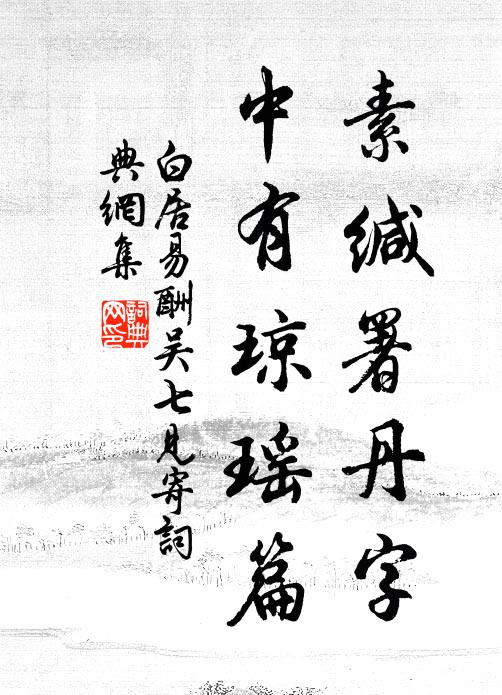 素缄署丹字
中有琼瑶篇
白居易酬吴七見寄詞
典網集
詞典
网印